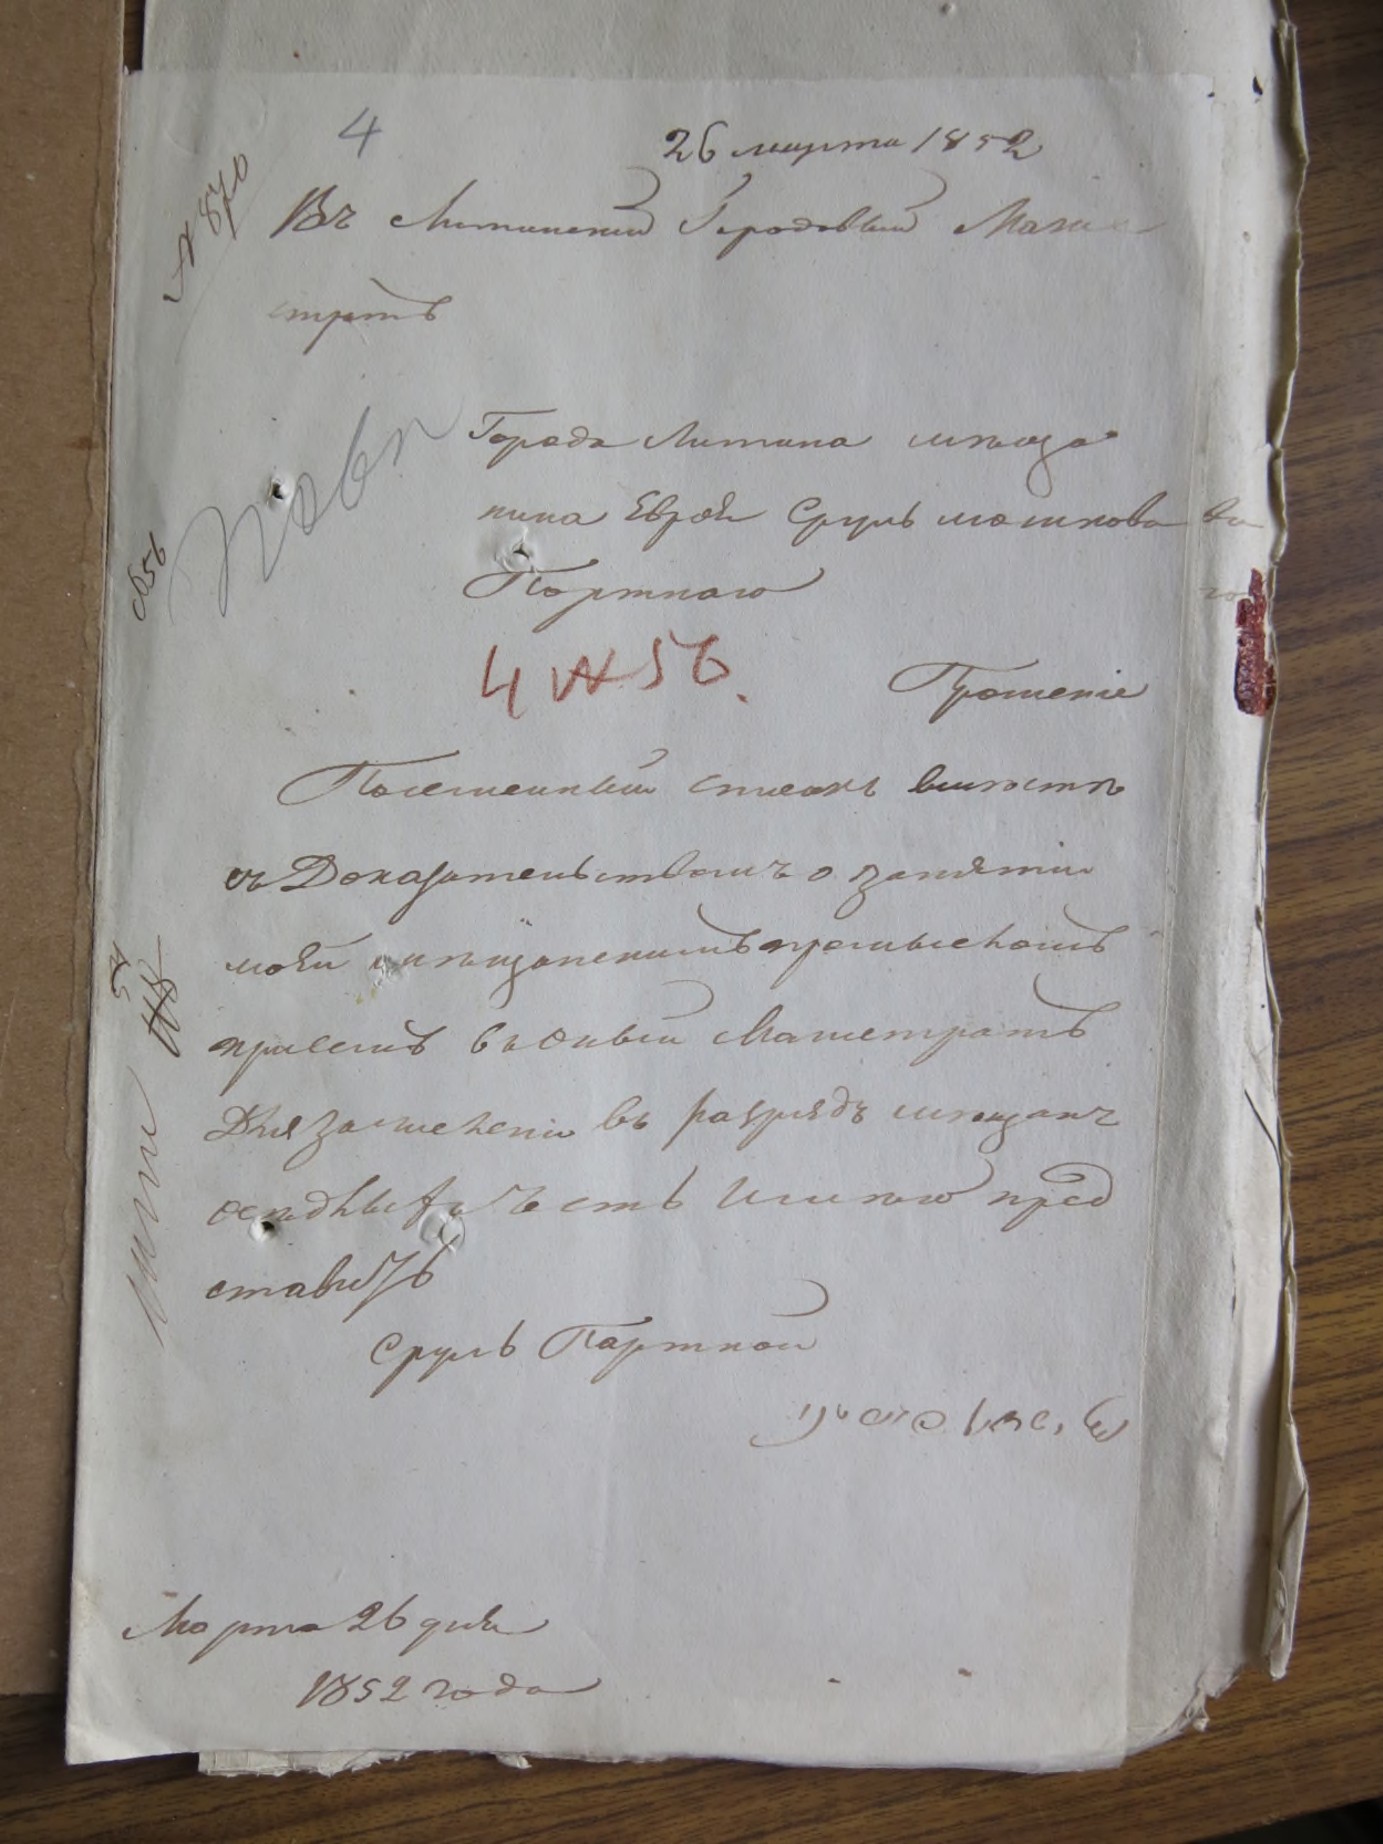 4
26 марта 1852
№ 870
Въ Литинскій Городовый Маги
стратъ
Города Литина мѣща
нина Еврея Сруль мошкова
Портнаго
4 № 56.
Прошеніе
Посемейный списокъ вмѣстѣ
съ Доказательствомъ о занятіи
моемъ мѣщанскимъ промысломъ
въ оный Магистратъ
Для зачисленія въ разрядъ мѣщанъ
осѣдлыхъ честь имѣю пред
ставить
Сруль Портной
Марта 26 дня
1852 года